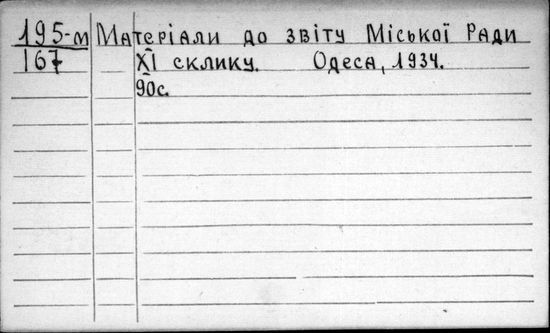 195-м Матеріали до звіту Міської Ради
167 XI склику. Одеса, 1934.
90с.